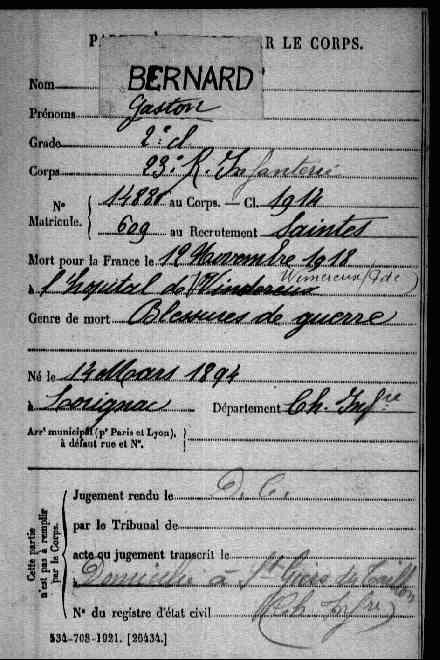 R LE CORPS.
Nom BERNARD
Prénoms Gaston
Grade 2e cl
Corps 23e R. Infanterie
N° Matricule. 14880 au Corps. — Cl. 1914
609 au Recrutement Saintes
Mort pour la France le 12 Novembre 1918
à l'hôpital de Wimereux (P de C)
Genre de mort Blessures de guerre
Né le 14 Mars 1894
à Lorignac Département Ch. Infre
Arrt municipal (pr Paris et Lyon), à défaut rue et N°.
Cette partie n'est pas à remplir par le Corps.
Jugement rendu le D. C.
par le Tribunal de
acte ou jugement transcrit le
à Domicilié à St
N° du registre d'état civil (Ch. Infre)
534-708-1921. [26434.]